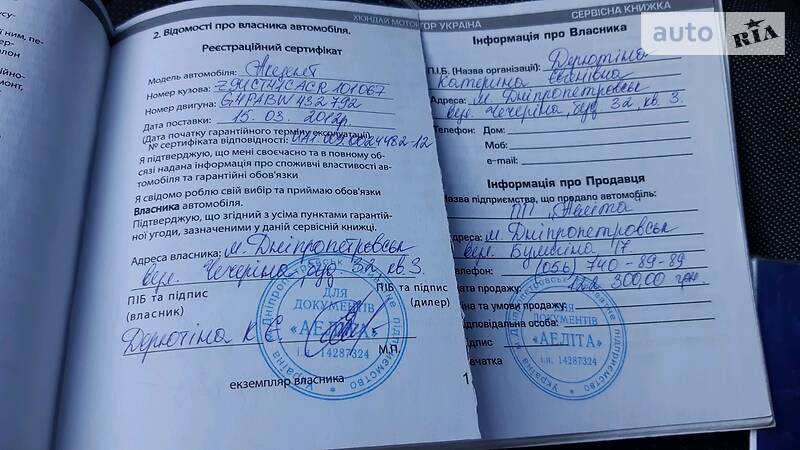 ХЮНДАЙ МОТОР УКРАЇНА
2. Відомості про власника автомобіля.
Реєстраційний сертифікат
Модель автомобіля: Акцент
Номер кузова:
Номер двигуна: G4FABW432792
Дата поставки: 15.03.2012р.
(Дата початку гарантійного терміну експлуатації)
№ сертифіката відповідності: UA1.003.0024482-12
Я підтверджую, що мені своєчасно та в повному об-
сязі надана інформація про споживчі властивості ав-
томобіля та гарантійні обов'язки
Я свідомо роблю свій вибір та приймаю обов'язки
Власника автомобіля.
Підтверджую, що згідний з усіма пунктами гарантій-
ної угоди, зазначеними у даній сервісній книжці.
Адреса власника: м. Дніпропетровськ
вул. Чечеріна буд 32 кв. 3.
ПІБ та підпис
(власник)
ПІБ та підпис
(дилер)
М.П.
ДЛЯ
ДОКУМЕНТІВ
«АЕЛІТА»
і.н. 14287324
екземпляр власника
1
СЕРВІСНА КНИЖКА
Інформація про Власника
П.І.Б. (Назва організації):
Катеріна Євгенівна
Адреса: м. Дніпропетровськ
вул. Чечеріна, буд 32 кв. 3.
Телефон: Дом:
Моб:
e-mail:
Інформація про Продавця
Назва підприємства, що продало автомобіль:
ПП "Аеліта"
Адреса: м. Дніпропетровськ
вул. 17
Телефон: (056) 740-89-89
продажу: 300,00 грн.
та умови продажу:
ідповідальна особа:
ідпис
ечатка
ДЛЯ
ДОКУМЕНТІВ
«АЕЛІТА»
і.н. 14287324
auto RIA